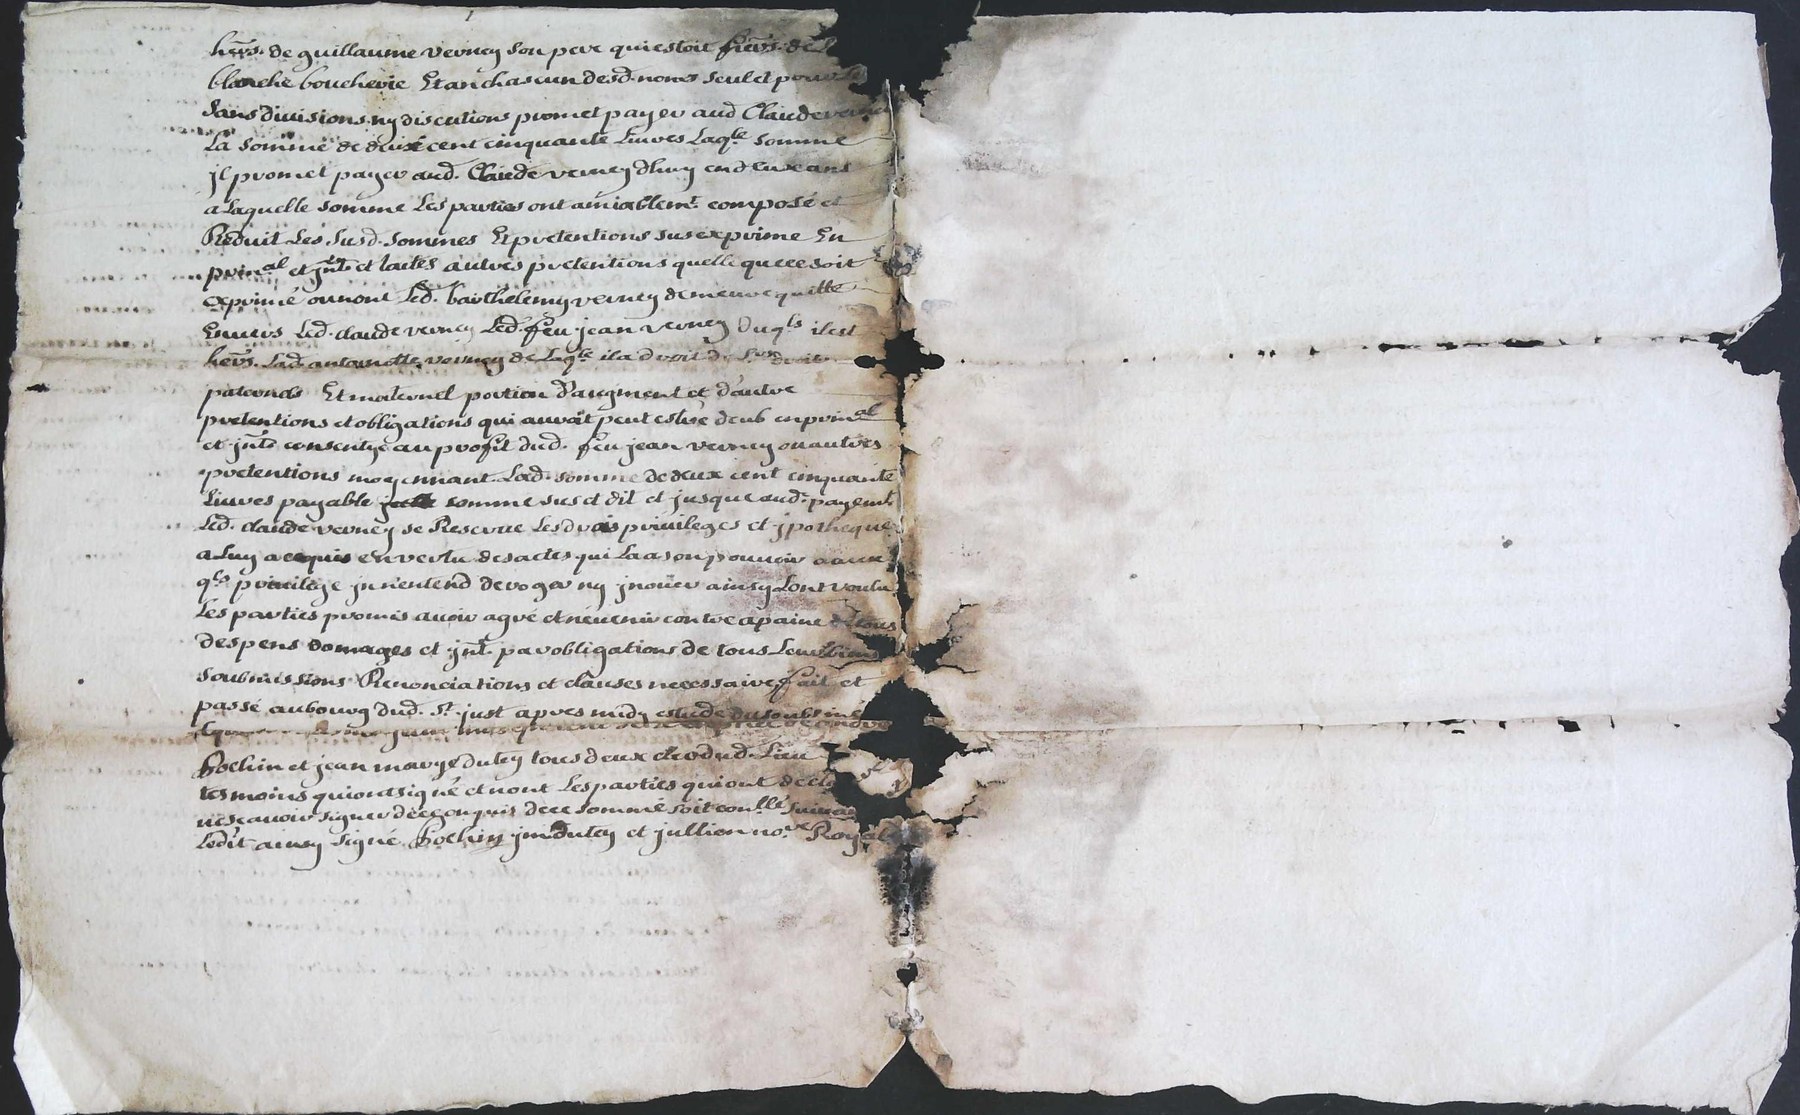 hers. de guillaume verney son pere qui estoit hers. de
blanche boucherie Et an chascun desd. noms seul et pour le
sans divisions ny discutions promet payer aud Claude verney
La somme de deux cent cinquante Liures Laqlle somme
jl promet payer aud. Claude verney d'huy en deux ans
a Laquelle somme Les parties ont amiablemt. composé et
Reduit Les susd. sommes Et pretentions sus exprime En
prinal et jnts et touttes autres pretentions quelle que ce soit
exprimé ou nont Led. barthelemy verney demeure quitte
Enuers Led. claude verney Led. feu jean verney Duqls il est
hers. Lad. antoinette verney de Laqlle il a droit de ses droits
paternels Et maternel portion d'augment et d'autre
pretentions et obligations qui auroit peut estre deub en prinal
et jnts consentye au profit dud. feu jean verney ou autres
pretentions moyennant Lad. somme de deux cent cinquante
Liures payable somme sus et dit et jusque aud. payemt.
Led. claude verney se Reserve Les drois priuileges et jpotheque
a Luy acquis en vertu des actes qui La a son pouuoir aux
qls priuilege jl n'entend deroger ny jnouer ainsy Lont voulu
Les parties promis auoir agré et ne venir contre a paine de tous
despens domages et jnts. par obligations de tous Leurs biens
soubmissions Renonciations et clauses necessaire, fait et
passé au bourg dud. St. just apres midy estude du soubsigné

hochin et jean marye duley tous deux clers dud. Lieu
tesmoins qui ont signé et nont Les parties qui ont
ne scauoir signer de ce enquis de ce sommé soit conllé suiuant
Ledit ainsy signé hochin jm duley et jullien nore Royal